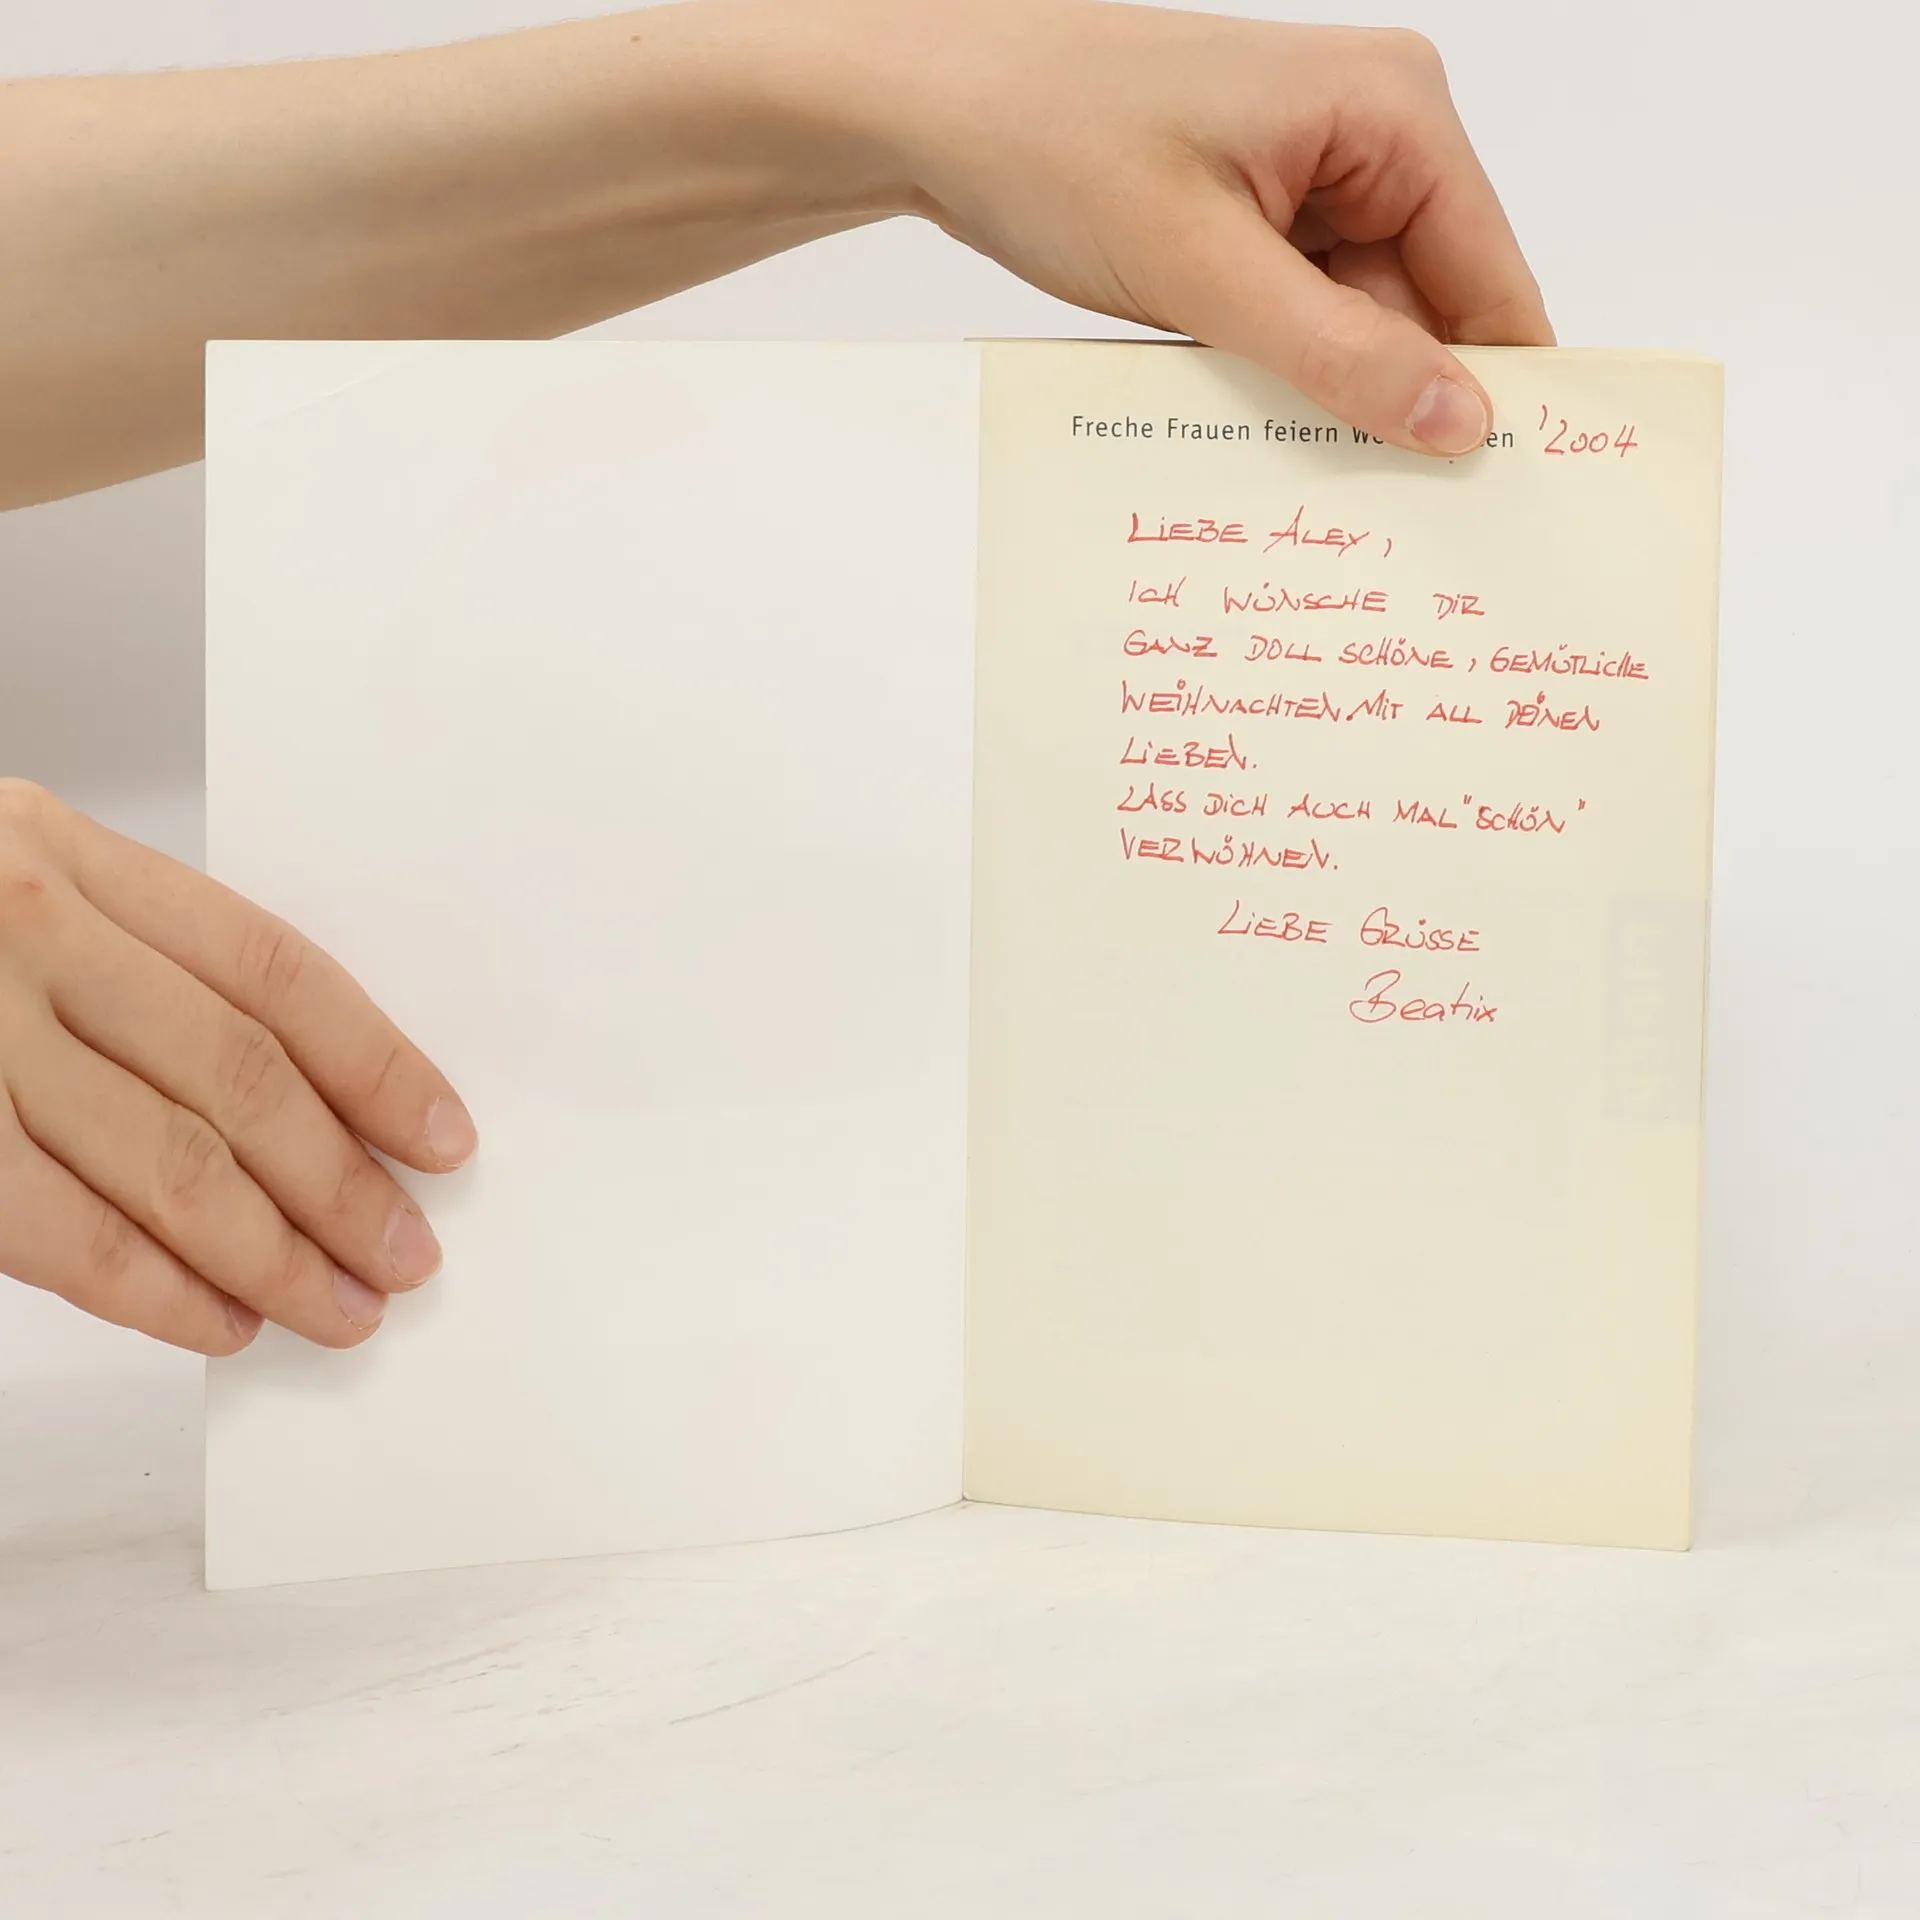 Freche Frauen feiern en '2004
LIEBE ALEX,
ICH WÜNSCHE DIR
GANZ DOLL SCHÖNE, GEMÜTLICHE
WEIHNACHTEN MIT ALL DEINEN
LIEBEN.
LASS DICH AUCH MAL "SCHÖN"
VERWÖHNEN.
LIEBE GRÜSSE
Beatrix